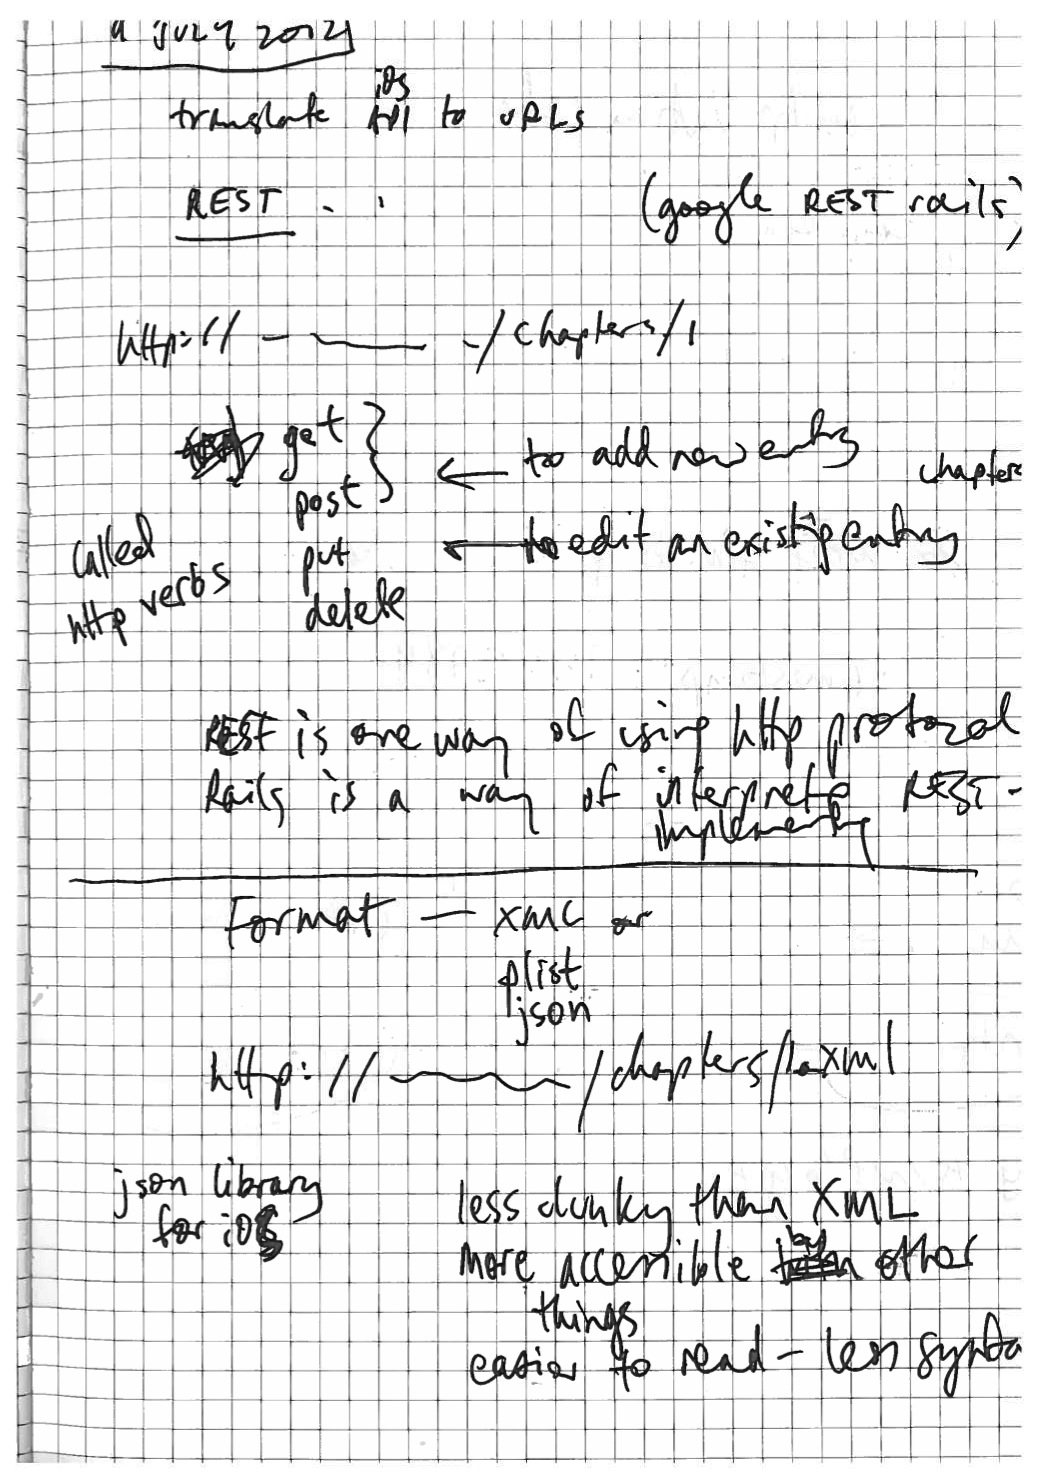 July 2012
iOS
translate API to URLs
REST . . (google REST rails)
http:// /chapters/1
get
post } ← to add new entry
chapters
put ← to edit an existing entry
delete
called
http verbs
REST is one way of using http protocol
Rails is a way of interpreting REST -
implementing
Format — XML or
plist
json
http:// /chapters/1.xml
json library
for iOS
less clunky than XML
more accessible by other
things
easier to read - less synta